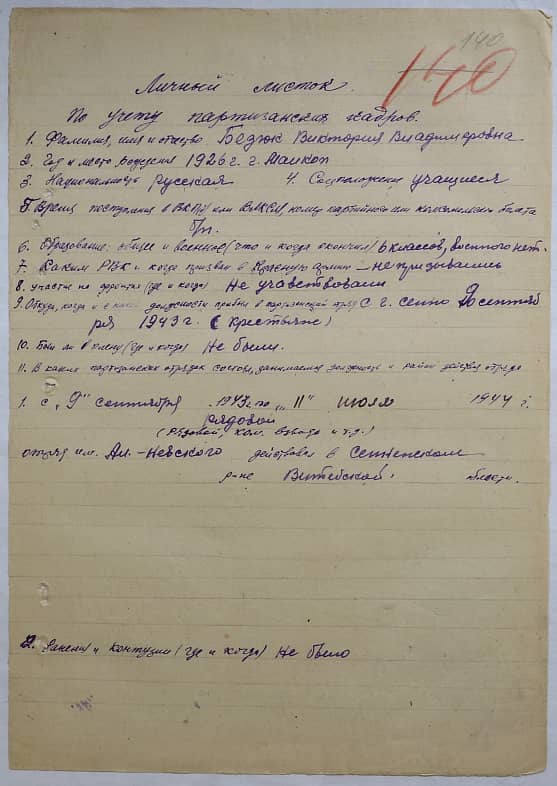 140
140
Личный листок
По учету партизанских кадров.
1. Фамилия, имя и отчество Бедюк Виктория Владимеровна
2. Год и место рождения 1926 г. г. Маикоп
3. Национальность русская 4. Соцположение учащиеся
5. Время поступления в ВКП/б или ВЛКСМ, номер партийного или комсомольск билета
б/п.
6. Образование: общее и военное (что и когда окончил) 6 классов, военного нет.
7. Каким РВК и когда призван в Красную армию – не призывались
8. Участие на фронтах (где и когда) Не учавствовали
9. Откуда, когда и в какой должности прибыл в партизанский отряд С г. Сенно 9 сентяб
ря 1943 г. (крестьяне)
10. Был ли в плену (где и когда) Не были.
11. В каких партизанских отрядах состоял, занимаемая должность и район действия отряда
1. с „9" сентября 1943 г. по „11" июля 1944 г.
рядовой
(Рядовой, ком. взвода и т.д.)
отряд им. Ал.-Невского действовал в Сенненском
р-не Витебской области.
2. Ранения и контузии (где и когда) Не было